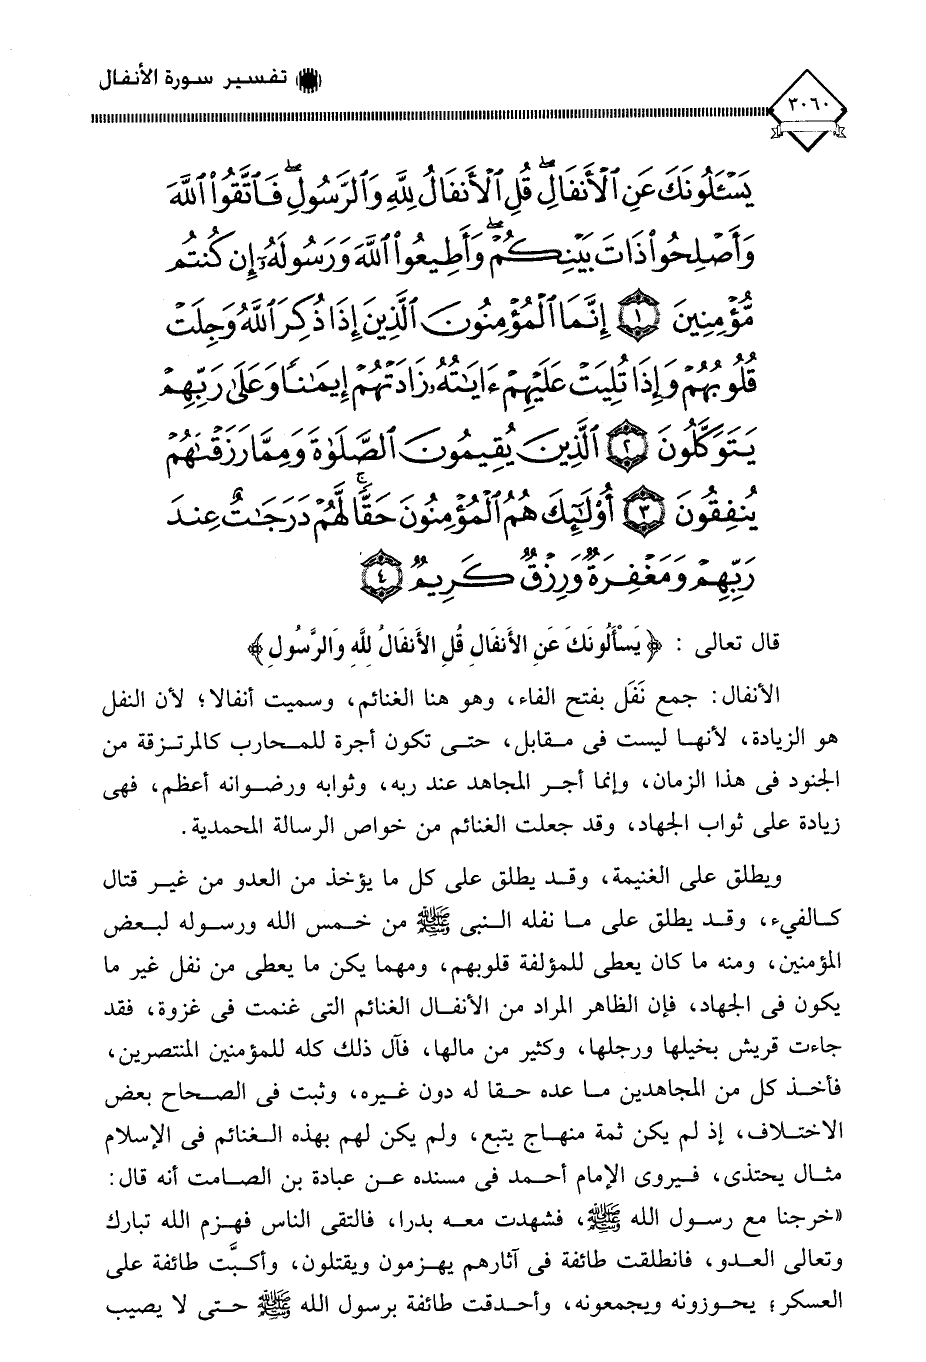 تفسير سورة الأنفال
٣٠٦٠
يَسْـَٔلُونَكَ عَنِ ٱلْأَنفَالِۖ قُلِ ٱلْأَنفَالُ لِلَّهِ وَٱلرَّسُولِۖ فَٱتَّقُوا۟ ٱللَّهَ
وَأَصْلِحُوا۟ ذَاتَ بَيْنِكُمْۖ وَأَطِيعُوا۟ ٱللَّهَ وَرَسُولَهُۥٓ إِن كُنتُم
مُّؤْمِنِينَ ١ إِنَّمَا ٱلْمُؤْمِنُونَ ٱلَّذِينَ إِذَا ذُكِرَ ٱللَّهُ وَجِلَتْ
قُلُوبُهُمْ وَإِذَا تُلِيَتْ عَلَيْهِمْ ءَايَٰتُهُۥ زَادَتْهُمْ إِيمَٰنًا وَعَلَىٰ رَبِّهِمْ
يَتَوَكَّلُونَ ٢ ٱلَّذِينَ يُقِيمُونَ ٱلصَّلَوٰةَ وَمِمَّا رَزَقْنَٰهُمْ
يُنفِقُونَ ٣ أُو۟لَٰٓئِكَ هُمُ ٱلْمُؤْمِنُونَ حَقًّاۚ لَّهُمْ دَرَجَٰتٌ عِندَ
رَبِّهِمْ وَمَغْفِرَةٌ وَرِزْقٌ كَرِيمٌ ٤
قال تعالى : ﴿ يَسْأَلُونَكَ عَنِ الأَنفَالِ قُلِ الأَنفَالُ لِلَّهِ وَالرَّسُولِ ﴾
الأنفال: جمع نَفَل بفتح الفاء، وهو هنا الغنائم، وسميت أنفالا؛ لأن النفل
هو الزيادة، لأنها ليست فى مقابل، حتى تكون أجرة للمحارب كالمرتزقة من
الجنود فى هذا الزمان، وإنما أجر المجاهد عند ربه، وثوابه ورضوانه أعظم، فهى
زيادة على ثواب الجهاد، وقد جعلت الغنائم من خواص الرسالة المحمدية.
ويطلق على الغنيمة، وقد يطلق على كل ما يؤخذ من العدو من غير قتال
كالفيء، وقد يطلق على ما نفله النبى ﷺ من خمس الله ورسوله لبعض
المؤمنين، ومنه ما كان يعطى للمؤلفة قلوبهم، ومهما يكن ما يعطى من نفل غير ما
يكون فى الجهاد، فإن الظاهر المراد من الأنفال الغنائم التى غنمت فى غزوة، فقد
جاءت قريش بخيلها ورجلها، وكثير من مالها، فآل ذلك كله للمؤمنين المنتصرين،
فأخذ كل من المجاهدين ما عده حقا له دون غيره، وثبت فى الصحاح بعض
الاختلاف، إذ لم يكن ثمة منهاج يتبع، ولم يكن لهم بهذه الغنائم فى الإسلام
مثال يحتذى، فيروى الإمام أحمد فى مسنده عن عبادة بن الصامت أنه قال:
«خرجنا مع رسول الله ﷺ، فشهدت معه بدرا، فالتقى الناس فهزم الله تبارك
وتعالى العدو، فانطلقت طائفة فى آثارهم يهزمون ويقتلون، وأكبَّت طائفة على
العسكر؛ يحوزونه ويجمعونه، وأحدقت طائفة برسول الله ﷺ حتى لا يصيب